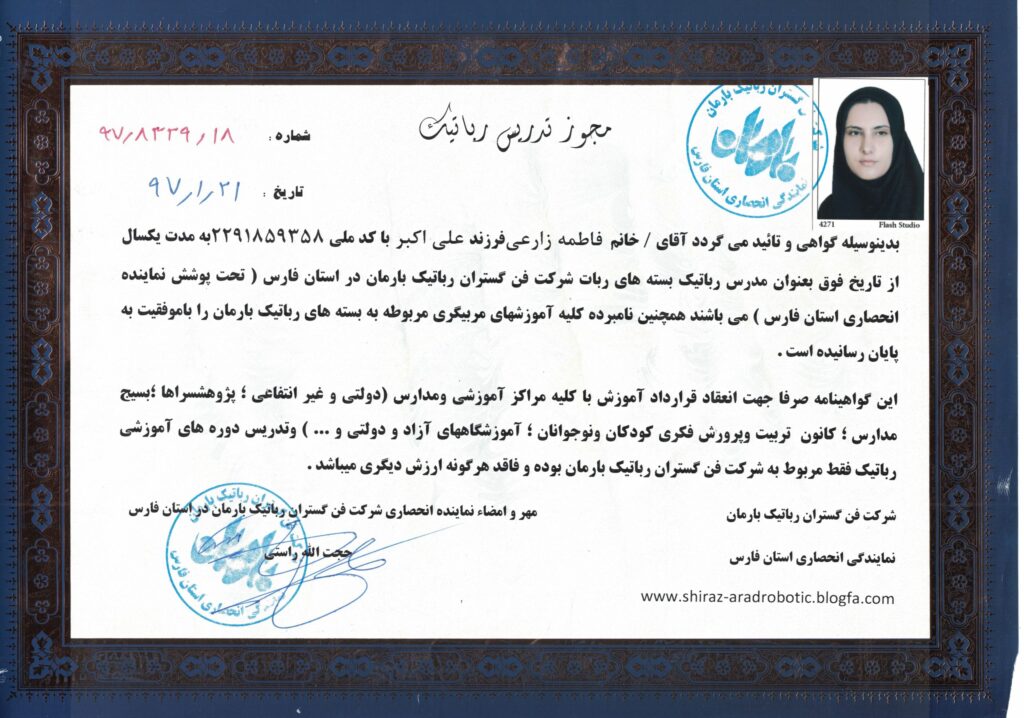 مجوز تدریس رباتیک
شماره : ۹۷/۸۳۳۹/۱۸
تاریخ : ۹۷/۱/۲۱
فن گستران رباتیک بارمان
بارمان
نمایندگی انحصاری استان فارس
4271 Flash Studio
بدینوسیله گواهی و تائید می گردد آقای / خانم فاطمه زارعی فرزند علی اکبر با کد ملی ۲۲۹۱۸۵۹۳۵۸به مدت یکسال
از تاریخ فوق بعنوان مدرس رباتیک بسته های ربات شرکت فن گستران رباتیک بارمان در استان فارس ( تحت پوشش نماینده
انحصاری استان فارس ) می باشند همچنین نامبرده کلیه آموزشهای مربیگری مربوطه به بسته های رباتیک بارمان را باموفقیت به
پایان رسانیده است .
این گواهینامه صرفا جهت انعقاد قرارداد آموزش با کلیه مراکز آموزشی ومدارس (دولتی و غیر انتفاعی ؛ پژوهشسراها ؛بسیج
مدارس ؛ کانون تربیت وپرورش فکری کودکان ونوجوانان ؛ آموزشگاههای آزاد و دولتی و ... ) وتدریس دوره های آموزشی
رباتیک فقط مربوط به شرکت فن گستران رباتیک بارمان بوده و فاقد هرگونه ارزش دیگری میباشد .
شرکت فن گستران رباتیک بارمان
نمایندگی انحصاری استان فارس
www.shiraz-aradrobotic.blogfa.com
مهر و امضاء نماینده انحصاری شرکت فن گستران رباتیک بارمان در استان فارس
حجت الله راستی
بارمان